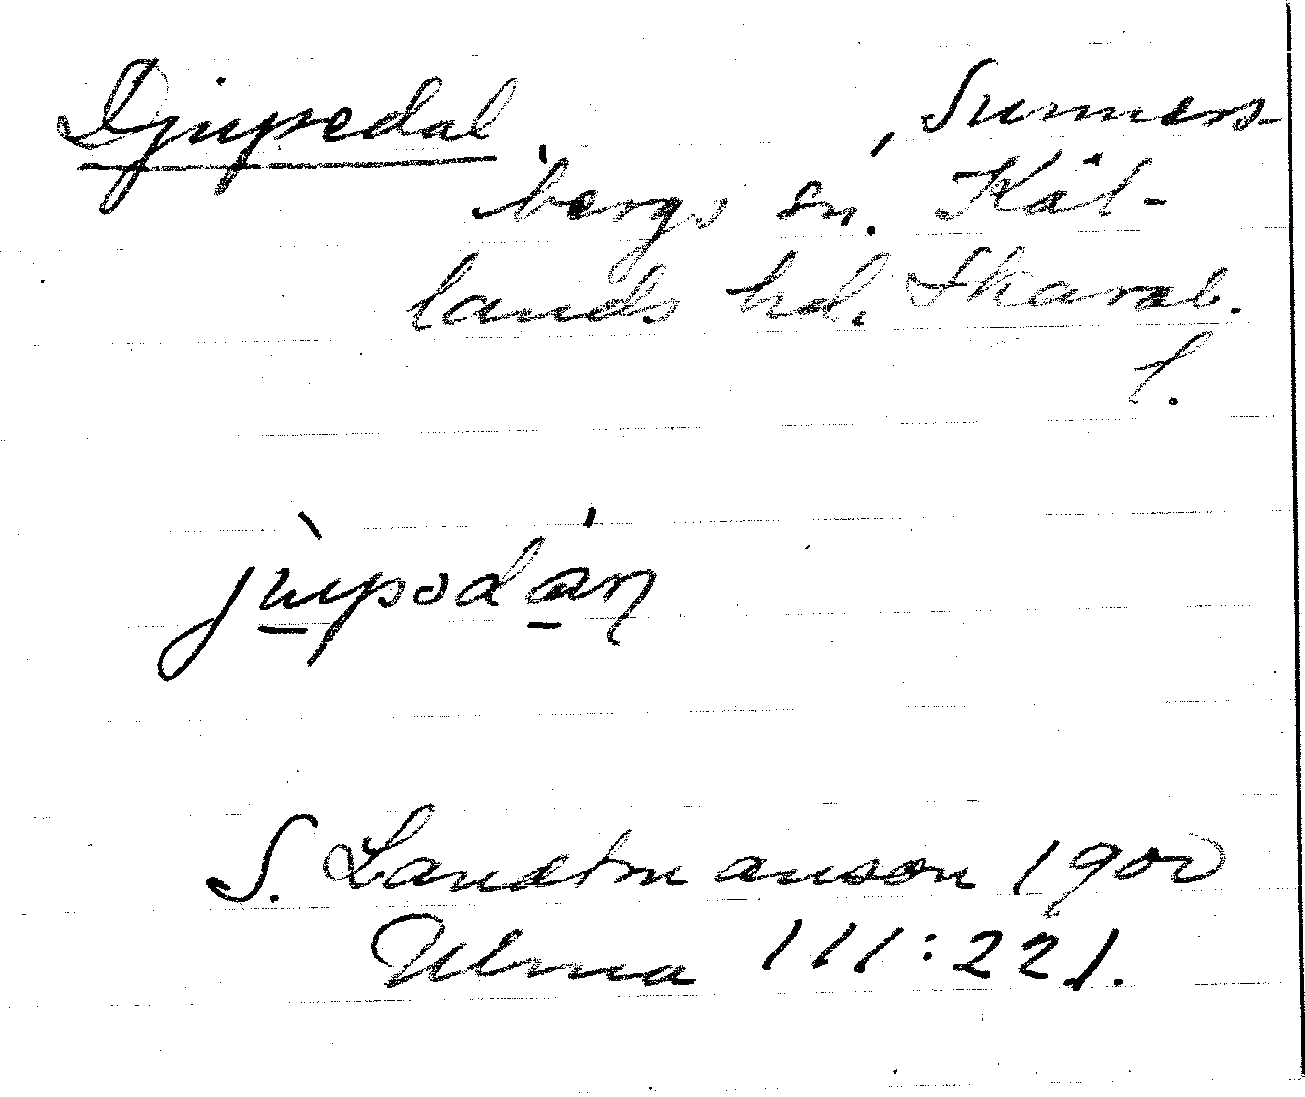 Djupedal, Sunners-
bergs sn. Kål-
lands hd. Skarab.
l.
jùpɷdáṉ
S. Landtmanson 1900
Ulma 111:221.